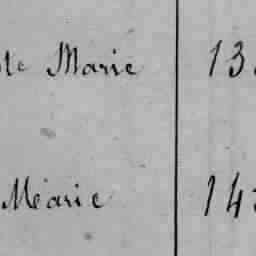 te Marie 13
Méarie 14